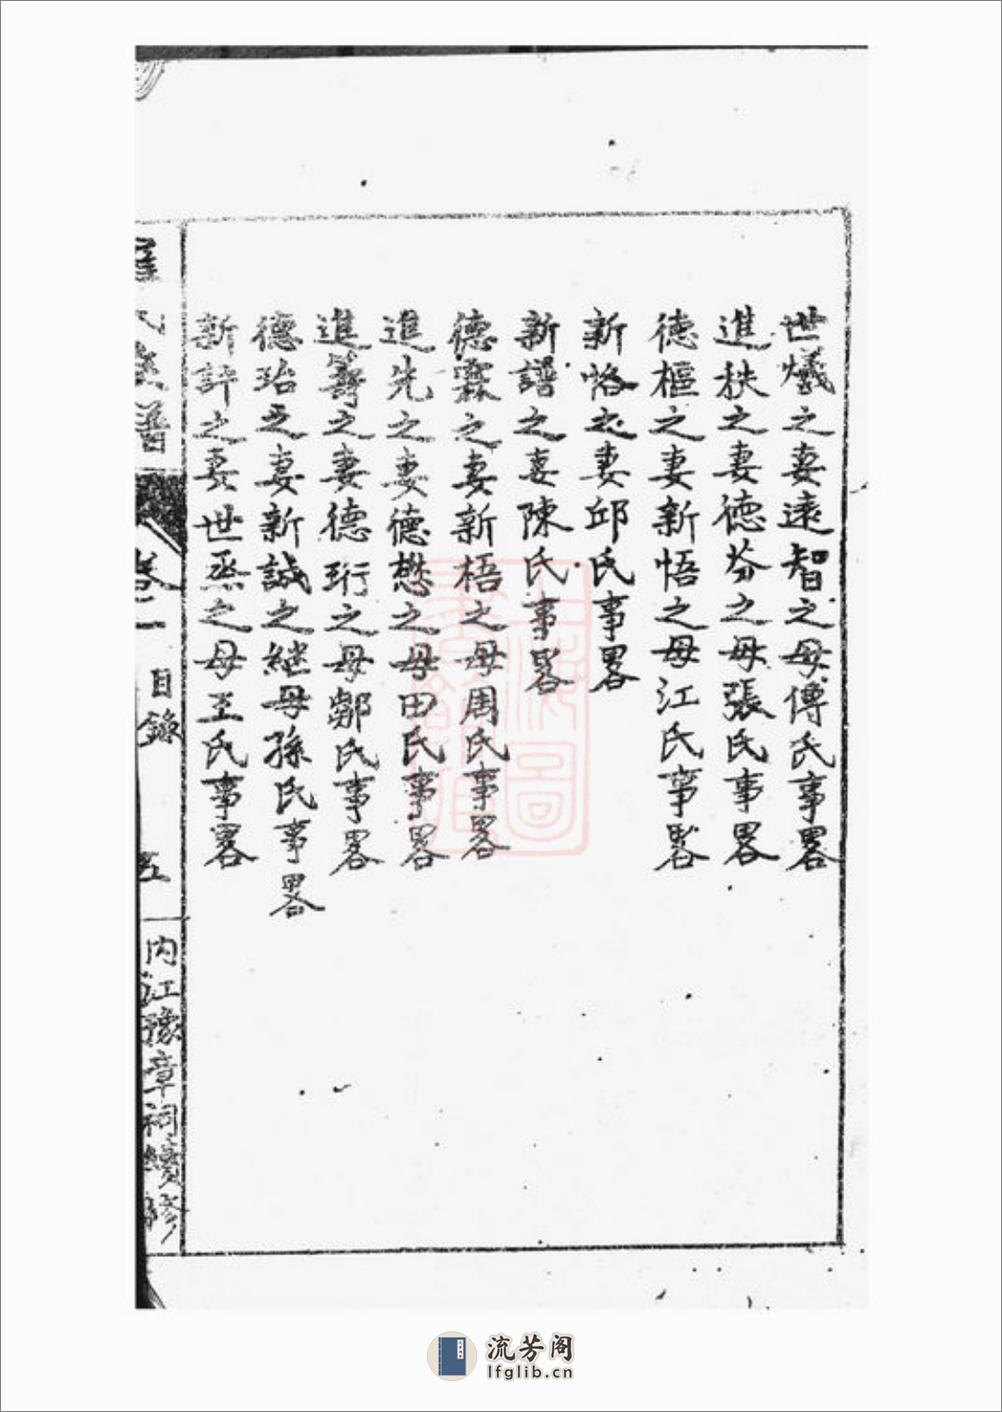 世爔之妻遠智之母傅氏事畧
進秩之妻德芬之母張氏事畧
德樞之妻新悟之母江氏事畧
新恪之妻邱氏事畧
新譜之妻陳氏事畧
德霖之妻新梧之母周氏事畧
進先之妻德懋之母田氏事畧
進籌之妻德珩之母鄒氏事畧
德珆之妻新誠之継母孫氏事畧
新評之妻世烝之母王氏事畧
氏族譜
卷一
目錄
五
内江豫章祠續修
上海圖
書館藏
流芳阁
lfglib.cn